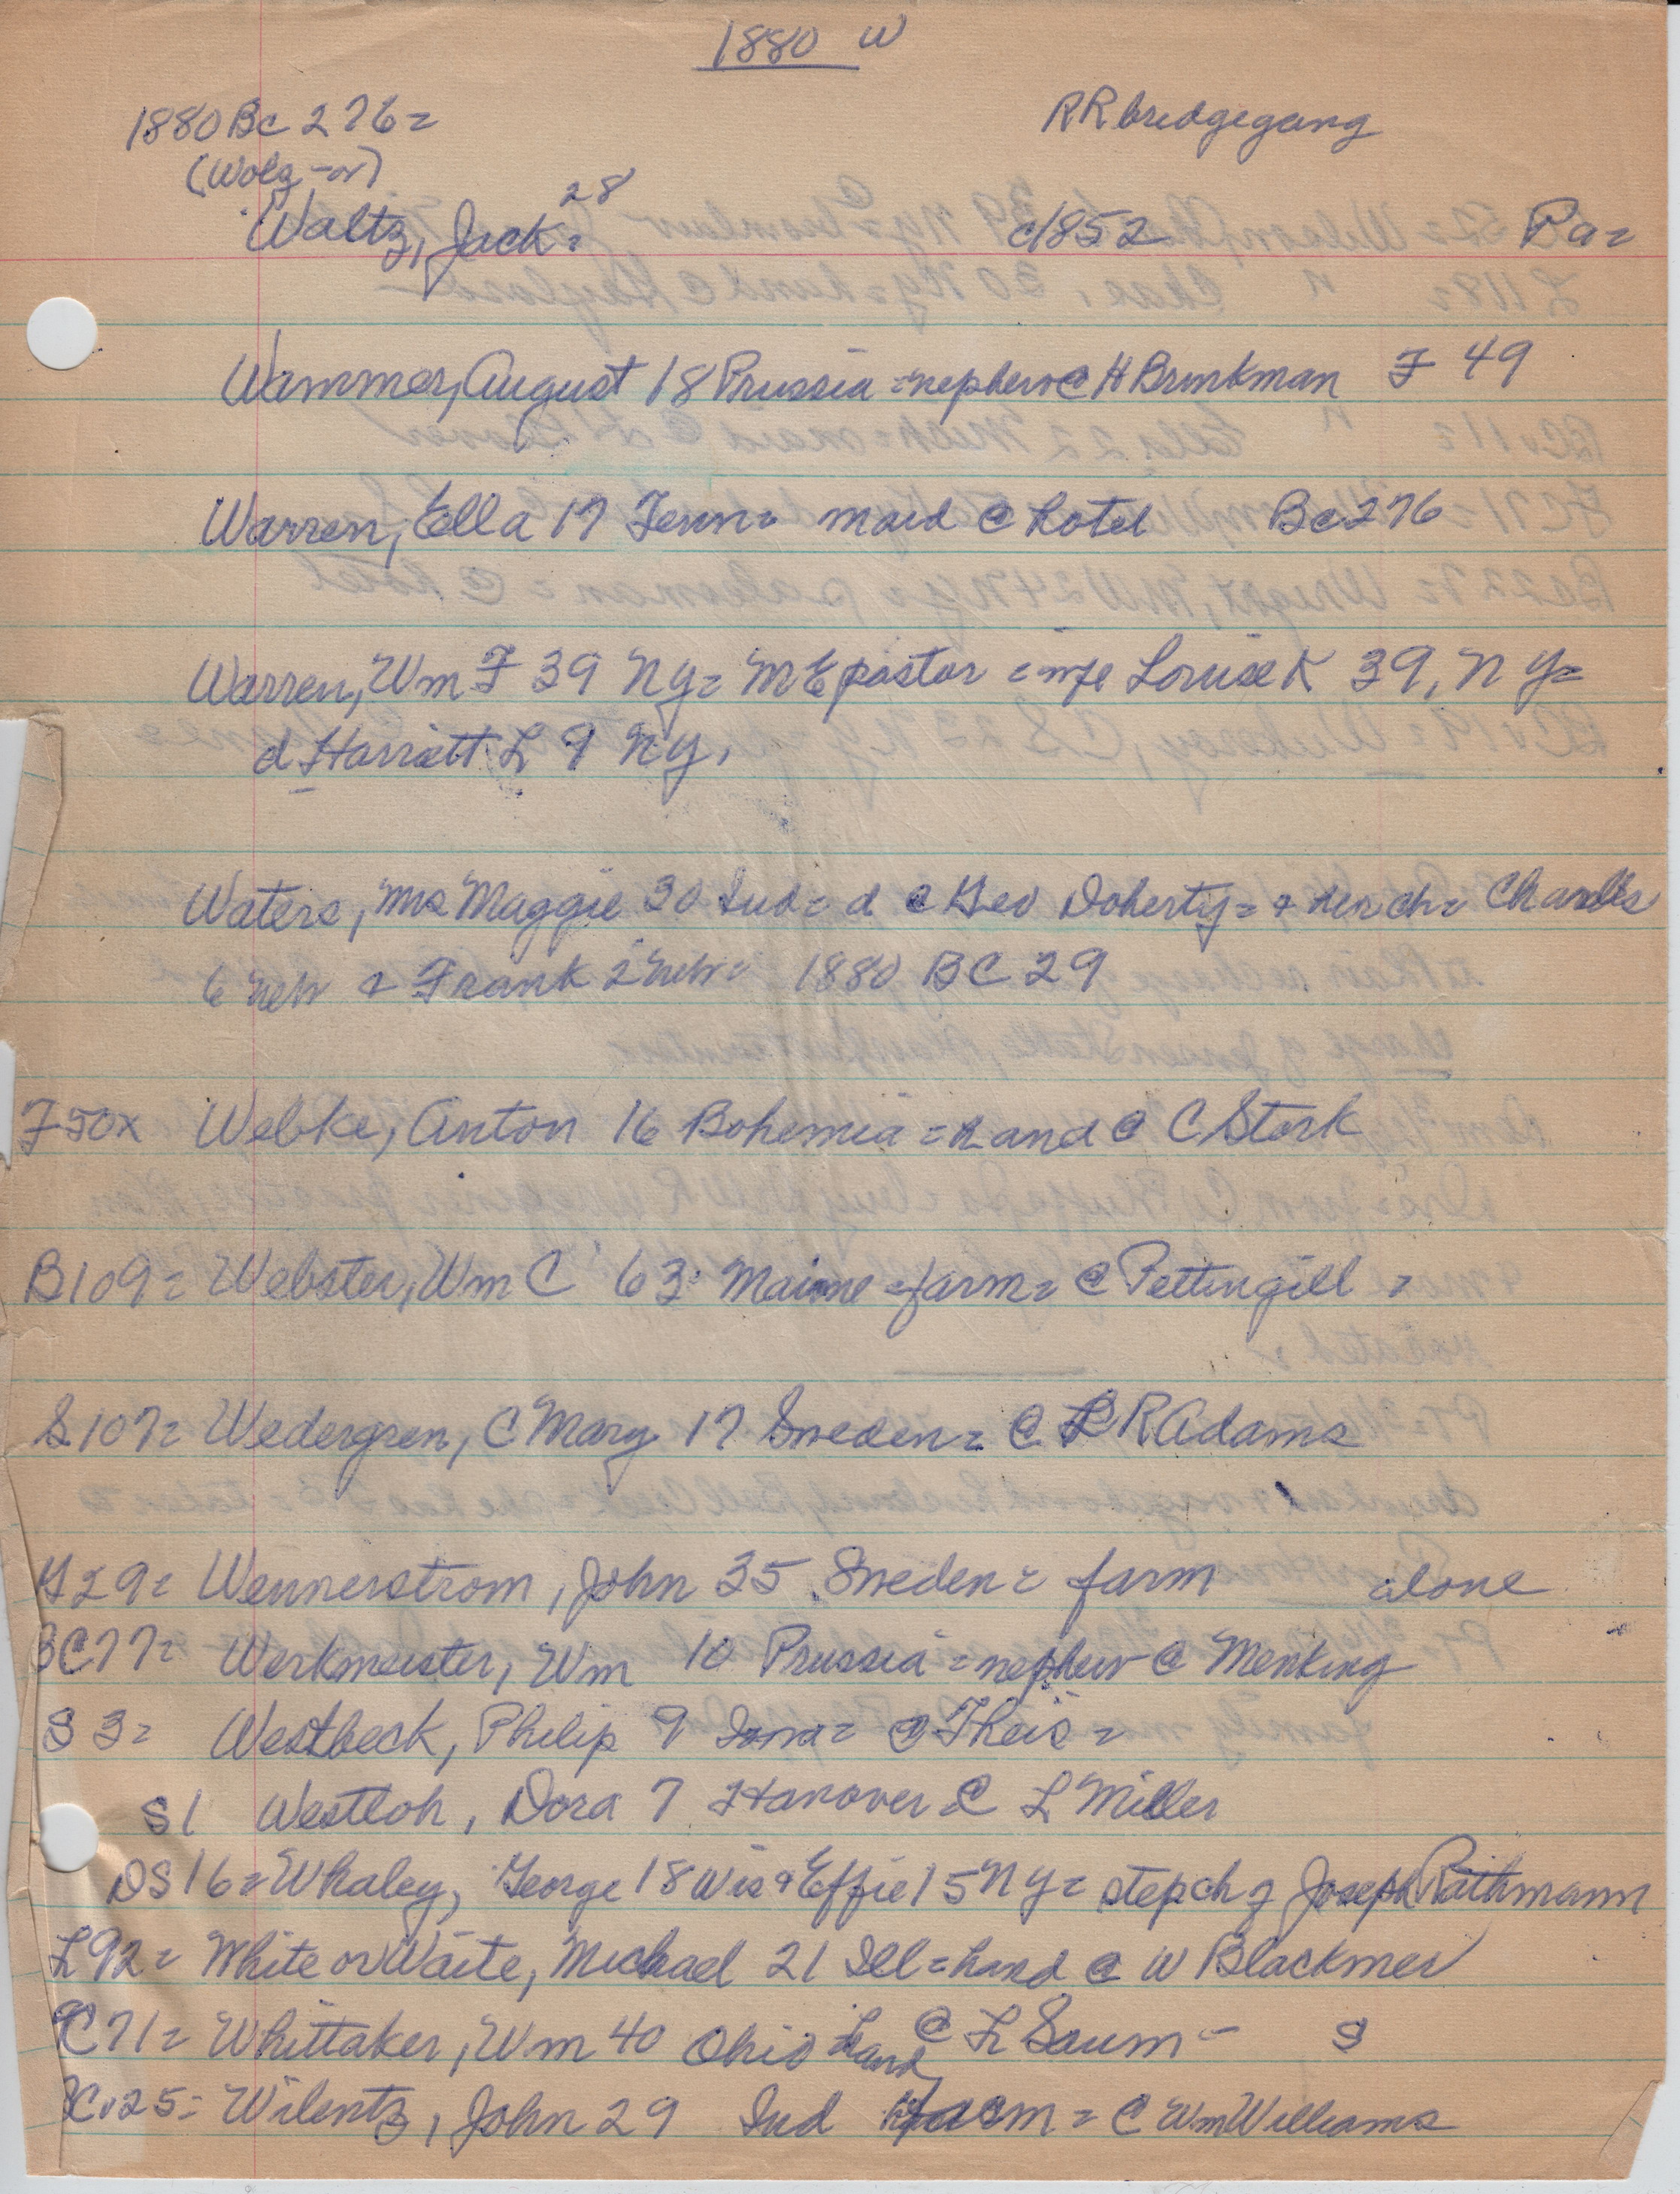 1880 W
1880 Bc 276= RR bridgegang
(Wolz-or)
Waltz, Jack= 28 c1852 Pa=
Wammer, August 18 Prussia = nephew @ H Brinkman F 49
Warren, Ella 17 Tenn= maid @ hotel Bc276
Warren, Wm F 39 Ny= ME pastor = wife Louise K 39, NY=
d Harriett L 9 Ny,
Waters, Mrs Maggie 30 Ind= d @ Geo Doherty= + her ch= Charles
6 Neb + Frank 2 Neb= 1880 BC 29
F50x Webke, Anton 16 Bohemia = hand @ C Stork
B109= Webster, Wm C 63 Maine = farm= @ Pettingill =
S107= Wedergren, C Mary 17 Sweden= @ L R Adams
29= Wennerstrom, John 35 Sweden= farm alone
BC77= Werkmeister, Wm 10 Prussia = nephew @ Menking
S 3= Westbeck, Philip 9 Iowa= @ Theis=
S1 Westloh, Dora 7 Hanover = @ L Miller
DS 16= Whaley, George 18 Wis + Effie 15 NY= stepch of Joseph Rathmann
L92= White or Waite, Michael 21 Ill = hand @ W Blackmer
C71= Whittaker, Wm 40 Ohio hand @ L Saum - S
25= Wilentz, John 29 Ind farm = @ Wm Williams